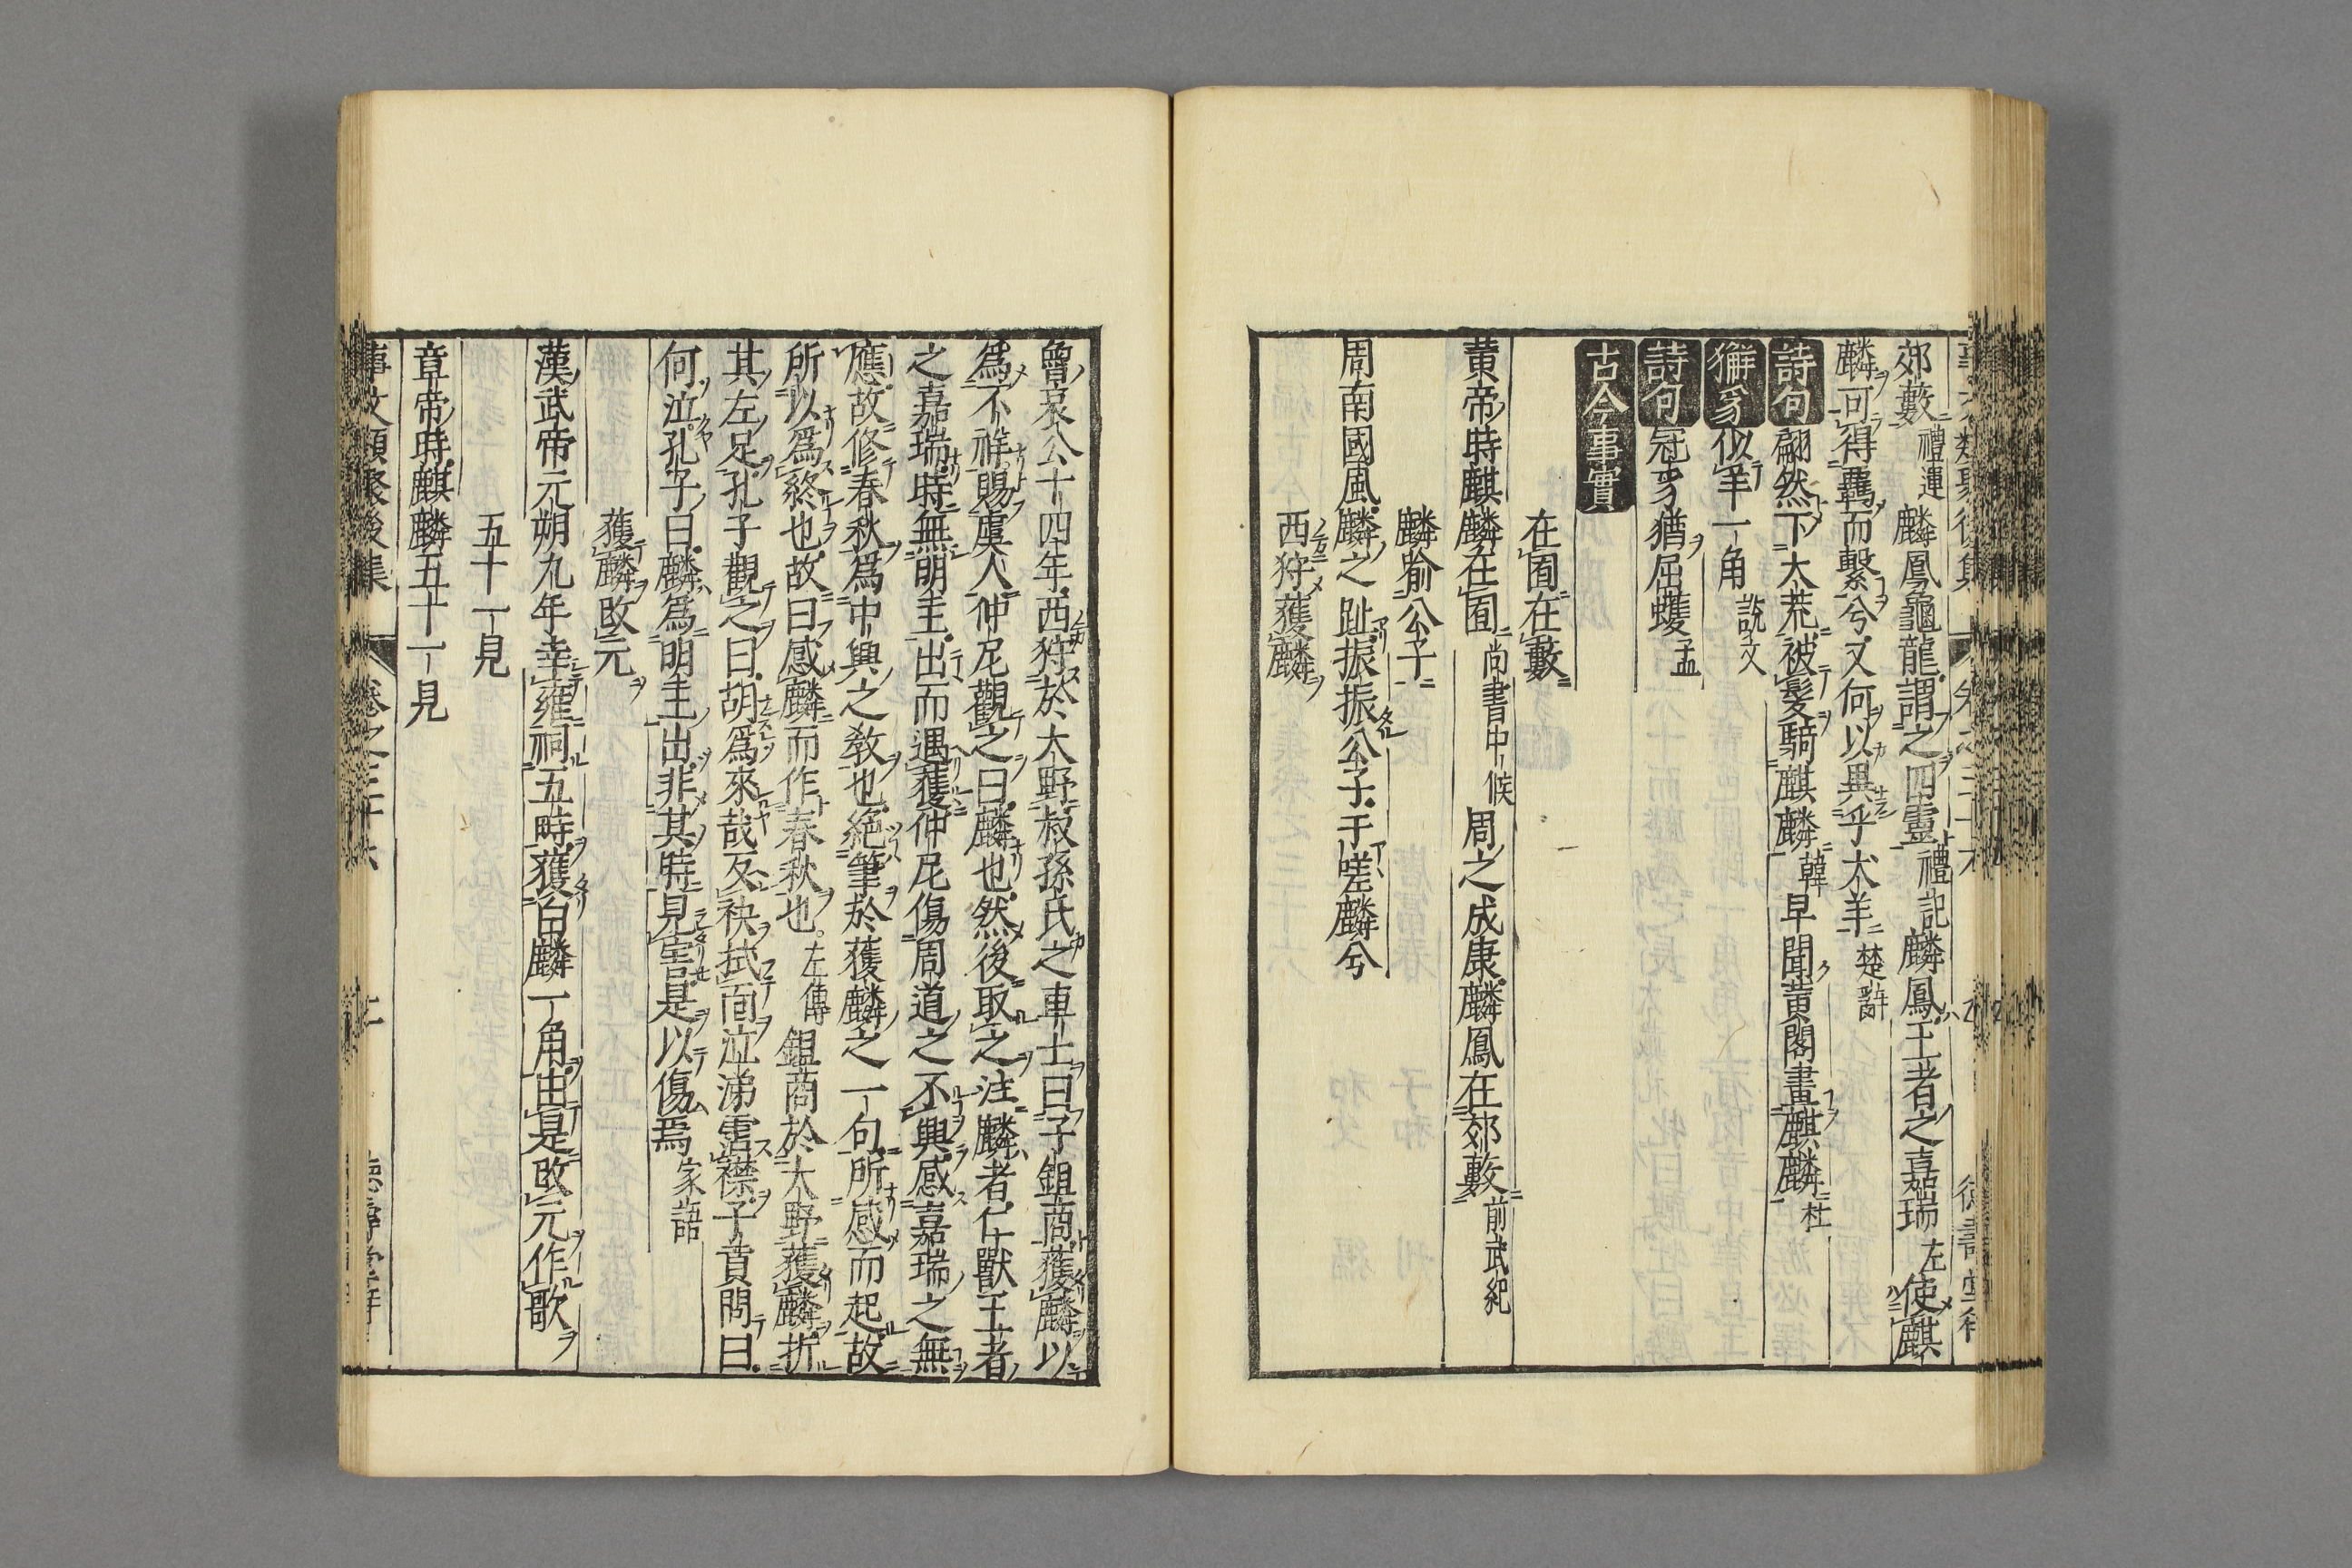 郊藪禮運麟鳳龜龍謂之四靈禮記麟鳳王者之嘉瑞左使麒
麟可得羈而繫兮又何以異乎犬羊楚辭
詩句翩然下大荒被髮騎麒麟韓早聞黃閣畫麒麟杜
獬豸似羊一角説文
詩句冠豸猶屈蠖孟
古今事實
在囿在藪
黃帝時麒麟在囿尚書中候周之成康麟鳳在郊藪前武紀
麟喻公子
周南國風麟之趾振振公子于嗟麟兮
西狩獲麟
魯哀公十四年西狩於大野叔孫氏之車士曰子鉏商獲麟以
爲不祥賜虞人仲尼觀之曰麟也然後取之注麟者仁獸王者
之嘉瑞時無明主出而遇獲仲尼傷周道之不興感嘉瑞之無
應故修春秋爲中興之教也絕筆於獲麟之一句所感而起故
所以爲終也故曰感麟而作春秋也左傳鉏商於大野獲麟折
其左足孔子觀之曰胡爲來哉反袂拭面泣涕霑襟子貢問曰
何泣孔子曰麟爲明主出非其時見害是以傷焉家語
獲麟改元
漢武帝元朔九年幸雍祠五畤獲白麟一角由是改元作歌
五十一見
章帝時麒麟五十一見
事文類聚後集 卷之三十六